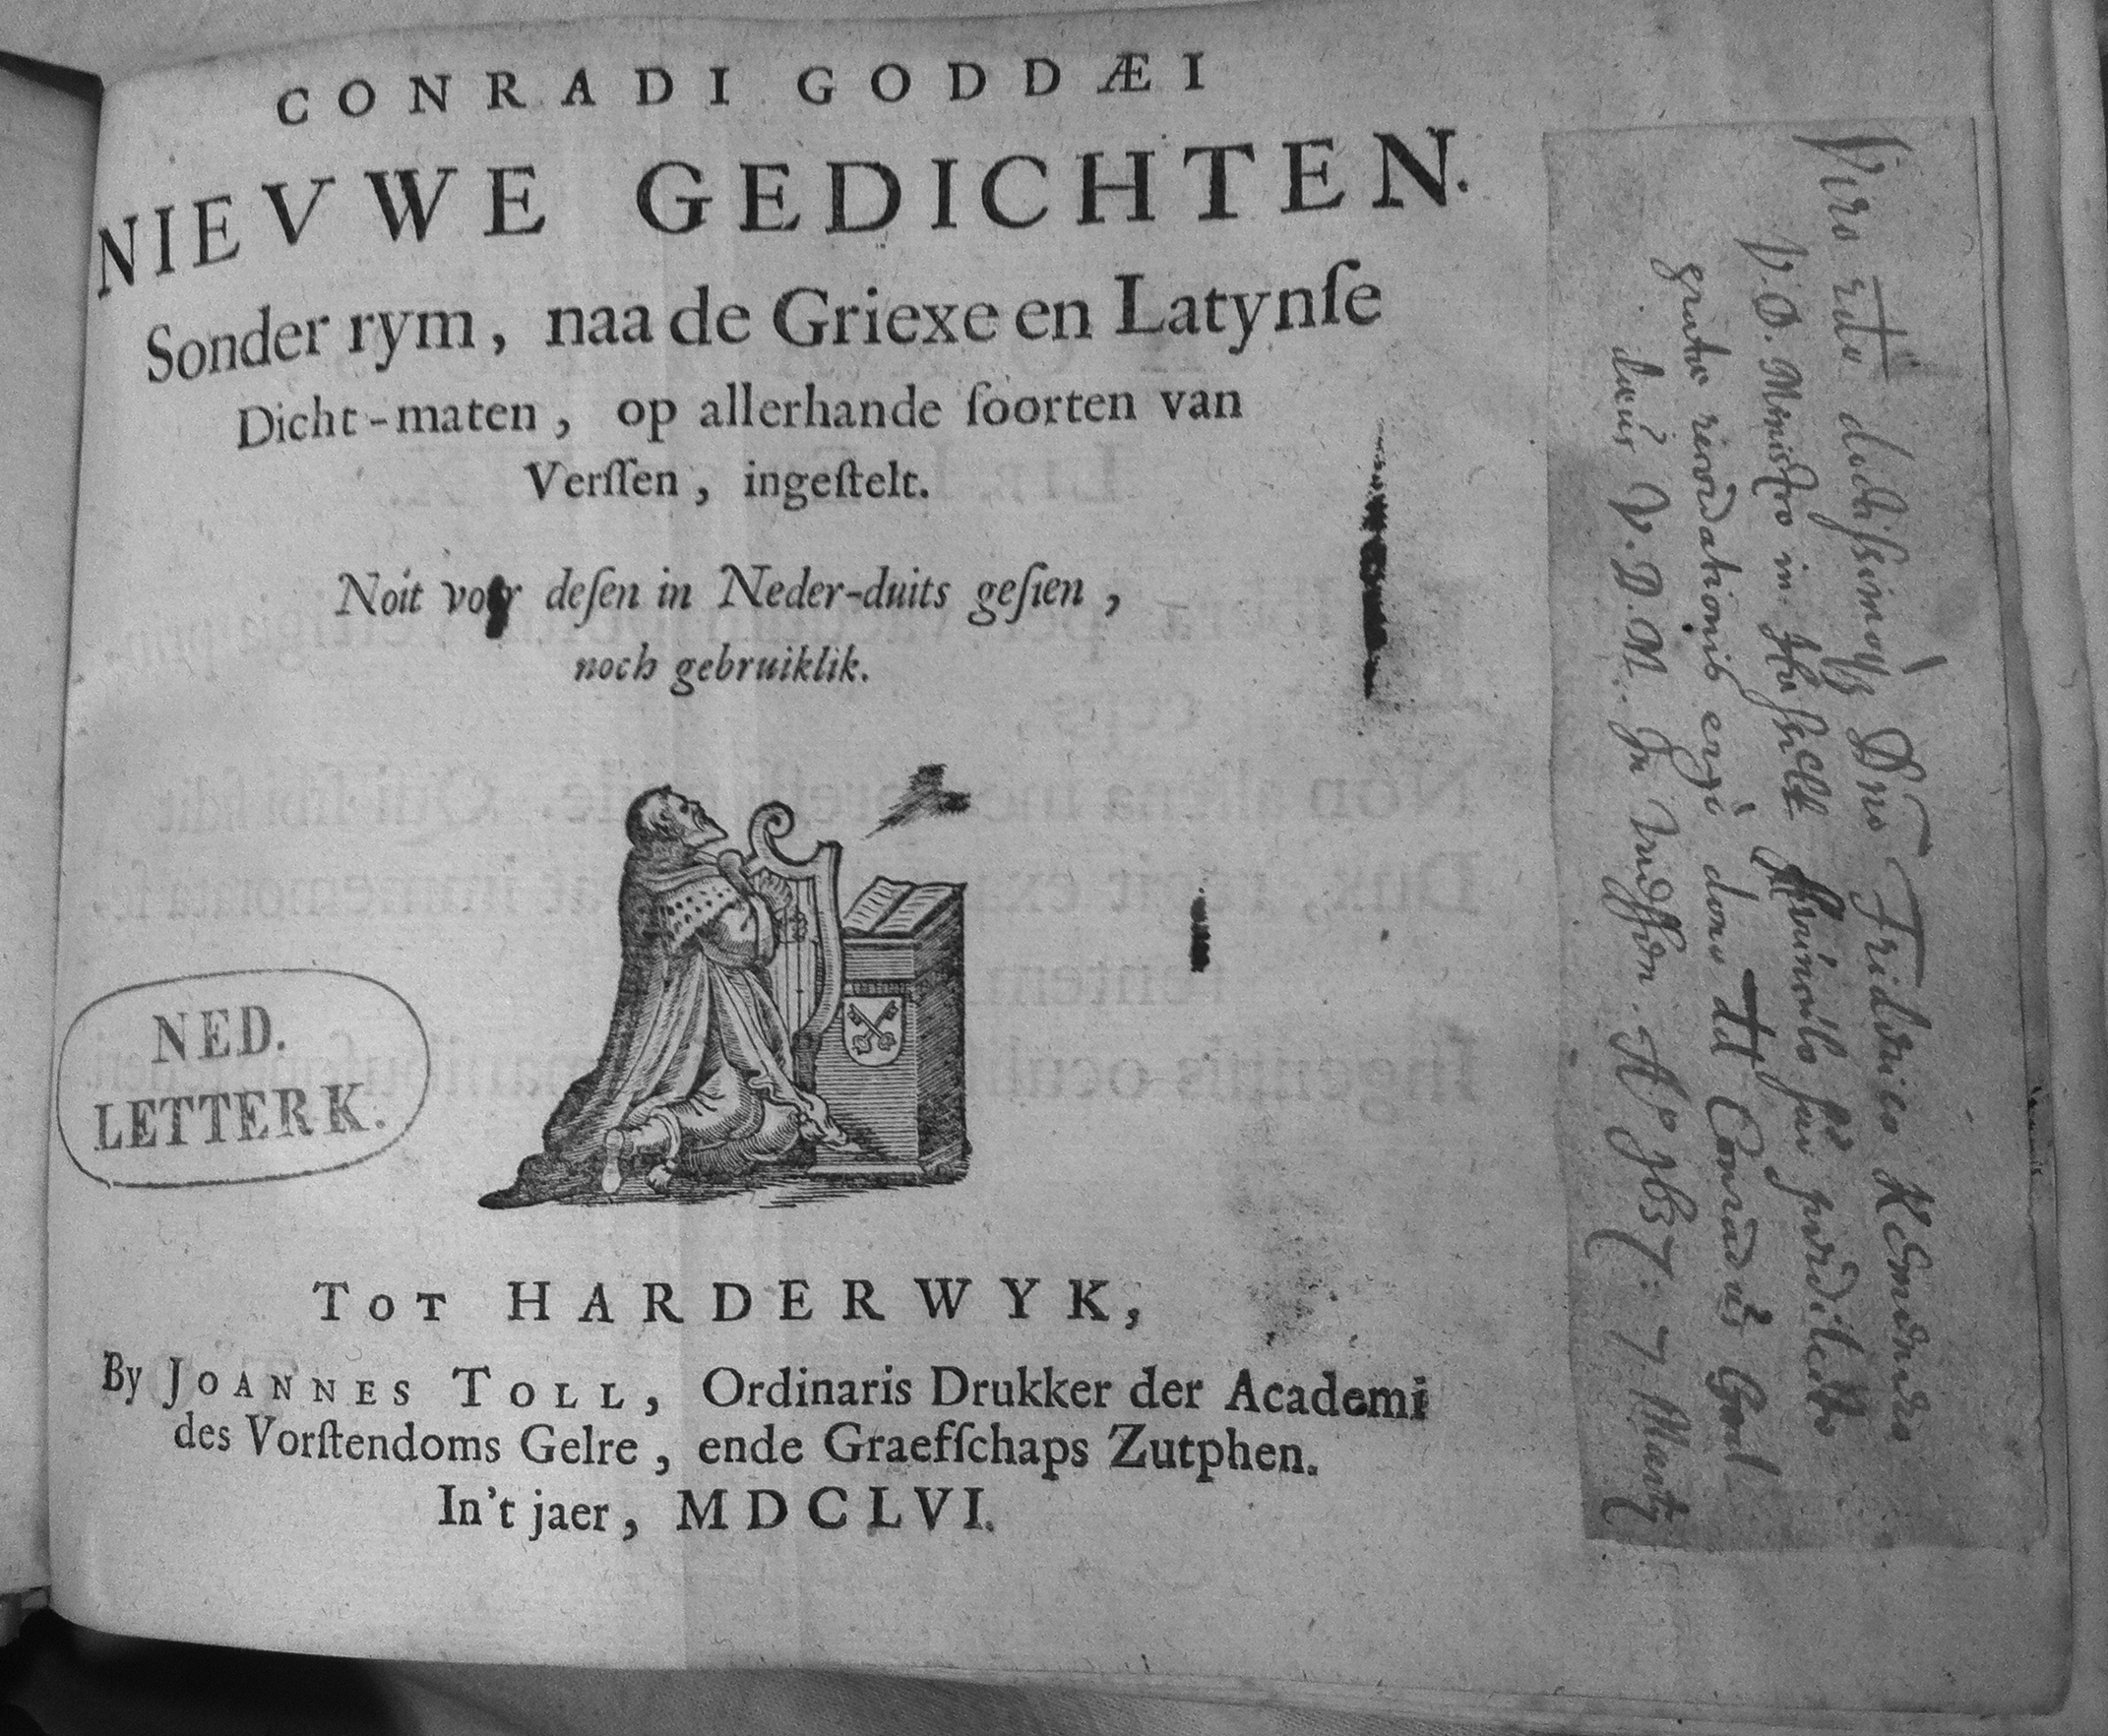 CONRADI GODDÆI
NIEVWE GEDICHTEN.
Sonder rym, naa de Griexe en Latynſe
Dicht-maten, op allerhande ſoorten van
Verſſen, ingeſtelt.
Noit voor deſen in Neder-duits geſien,
noch gebruiklik.
NED.
LETTERK.
TOT HARDERWYK,
By JOANNES TOLL, Ordinaris Drukker der Academi
des Vorſtendoms Gelre, ende Graefſchaps Zutphen.
In't jaer, MDCLVI.
Viro doctissimoq Dno Friderico
V. D. Ministro in Hasselt sui
gratae recordationis ergò dono dd Conradus
V. D. M. In Aº 1657. 7 Marty